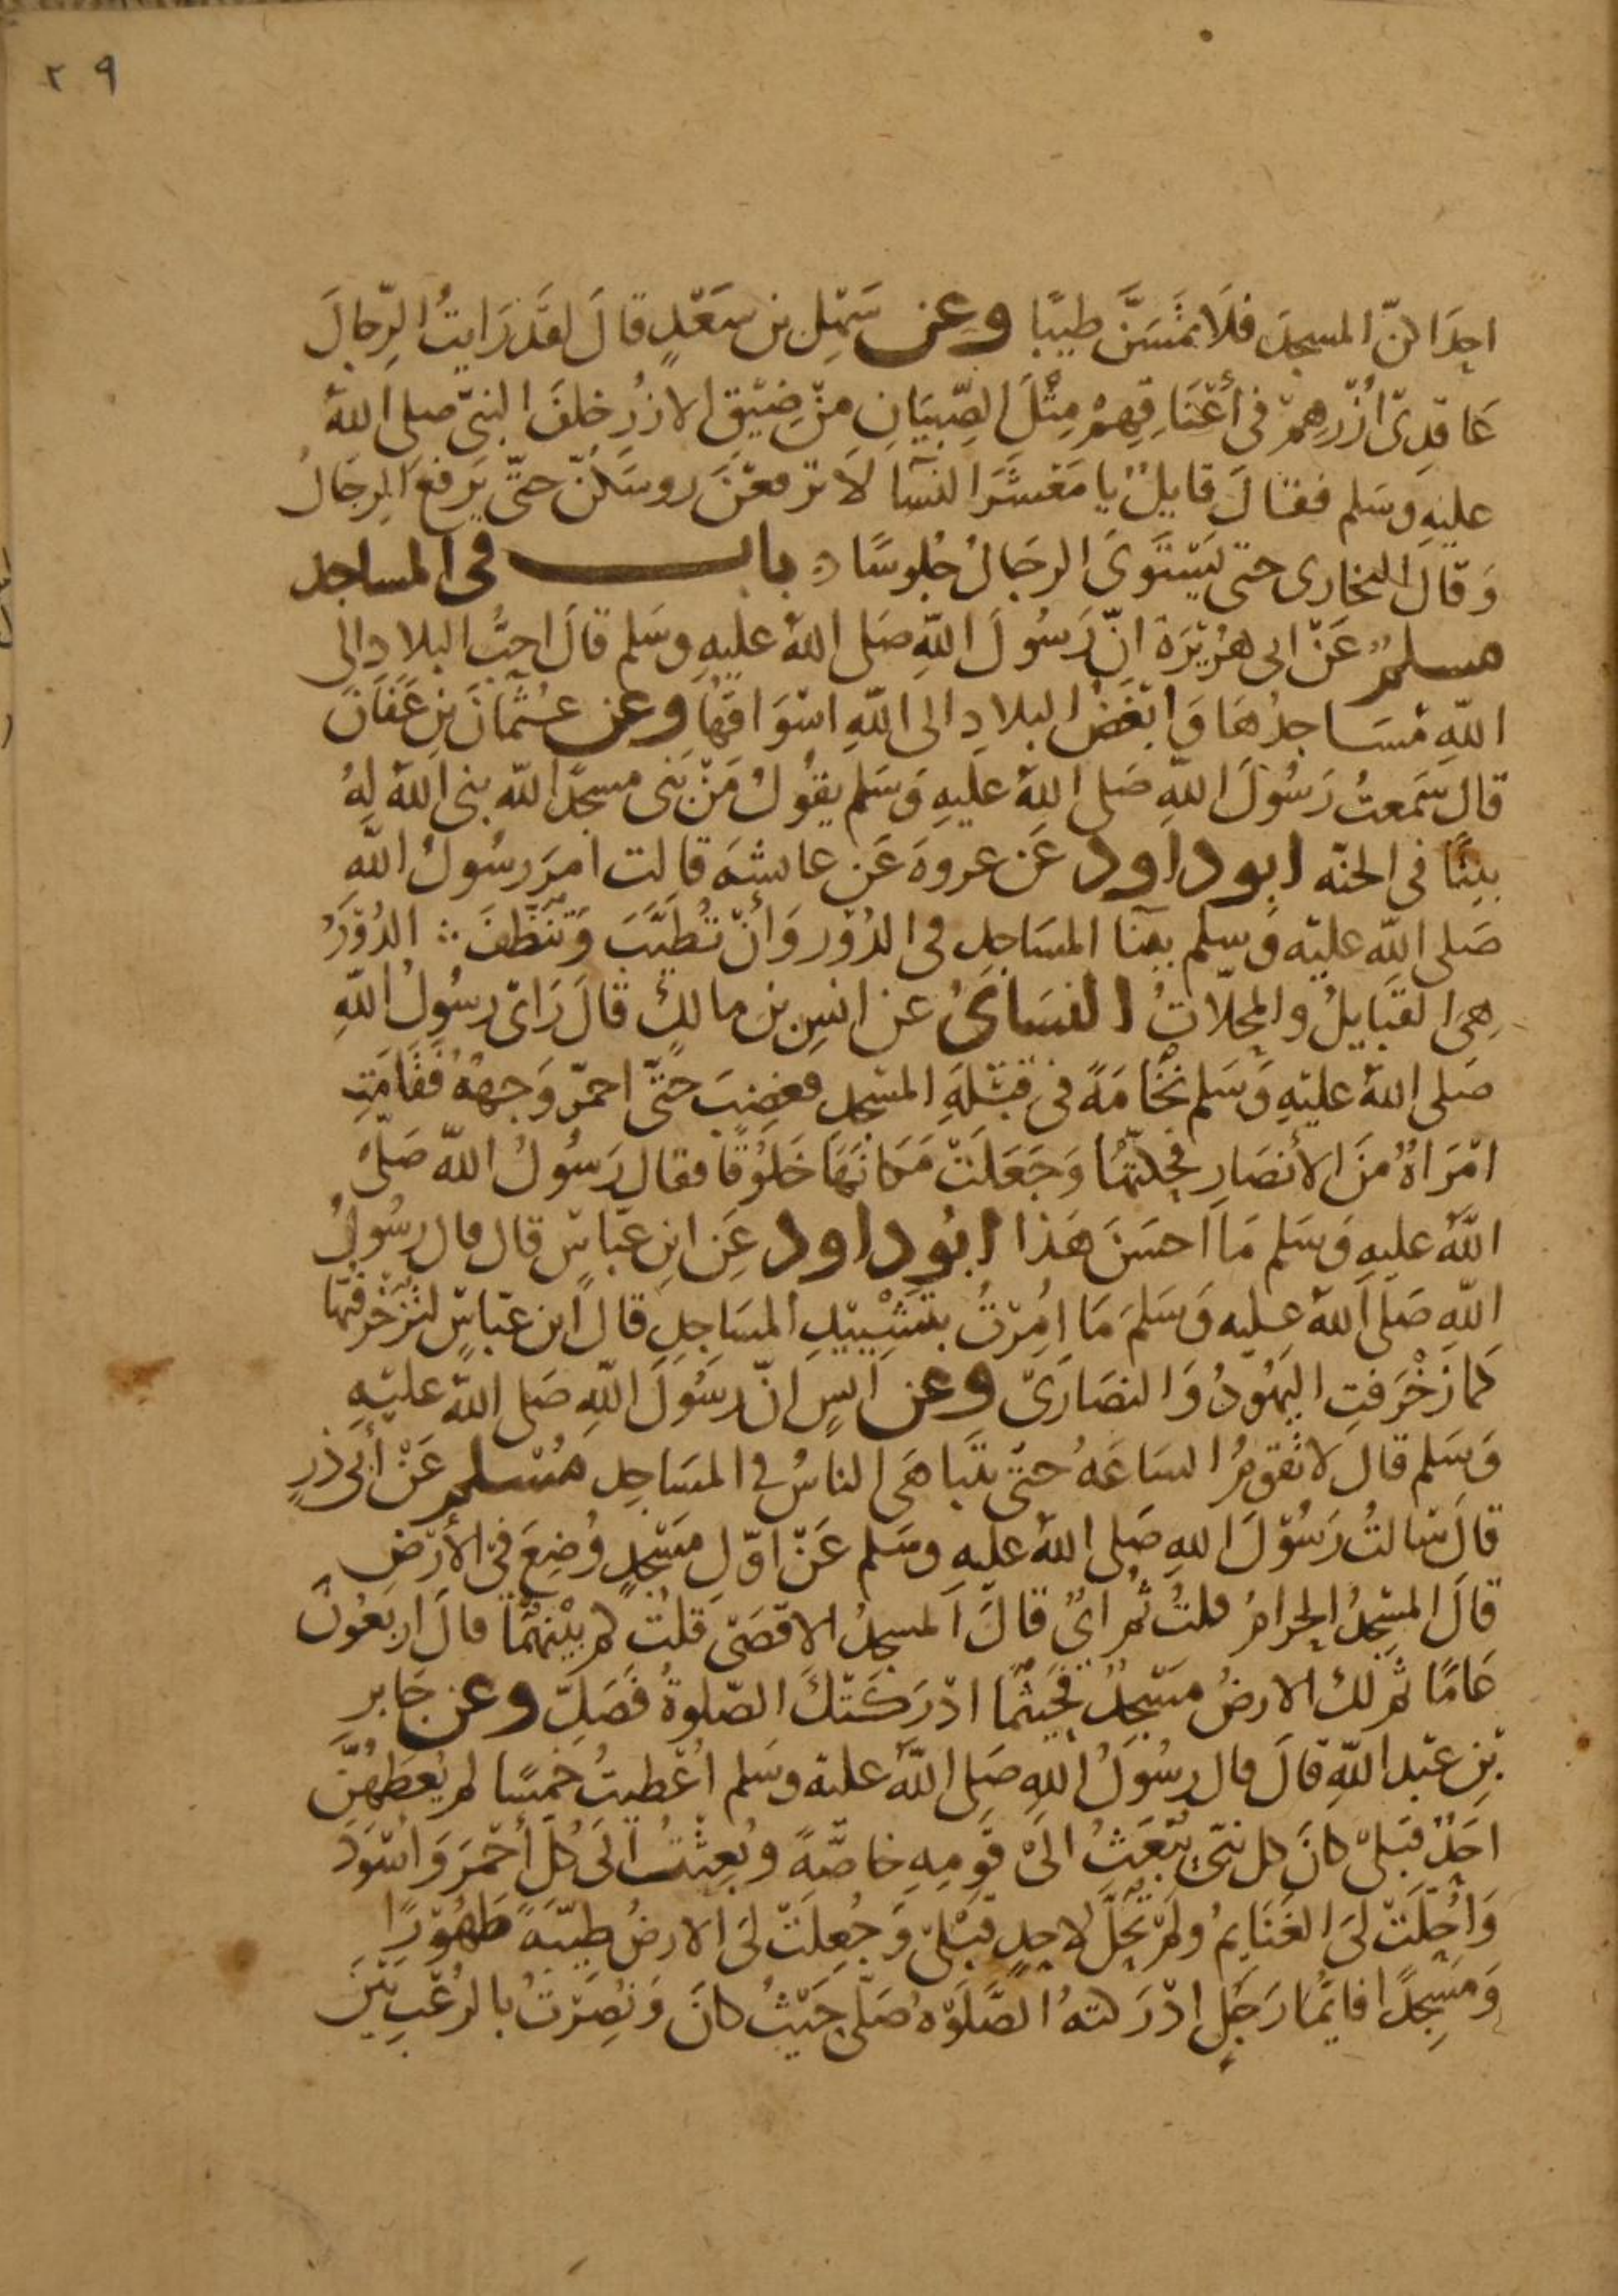 ٢٩
احدَاكنّ المسجدَ فلَا تمَسَّنَّ طيبًا وعن سَهْلِ بن سَعْدٍ قالَ لقَد رَايتُ الرِّجالَ
عَاقدِىْ اُزْرِهِمْ فى أعْنَاقِهِمْ مِثْلَ الصِّبيَانِ مِنْ ضِيْقِ الازرِ خلفَ النبىّ صلى اللهُ
عليهِ وسَلم فقالَ قايلٌ يا مَعْشَرَ النسَآ لَا ترفعْنَ روسَكنّ حتّى يَرفعَ الرجَالُ
وَقالَ البخارى حتى يَسْتَوىَ الرجَالُ جُلوسًا باب فى المساجد
مسلمٌ عَنْ ابى هُرَيْرَة انّ رَسُولَ اللهِ صَلى اللهُ عليهِ وسَلم قالَ احبُّ البلادِ الى
اللهِ مَسَاجدُهَا وَابْغَضُ البلادِ الى اللهِ اسْوَاقهَا وعن عُثمانَ بنِ عَفانَ
قال سَمعتُ رَسُولَ اللهِ صَلى اللهُ عليهِ وَسَلم يقُولُ مَنْ بَنى مسجدًا لله بنى اللهُ لهُ
بيتًا فى الجنّه ابو داود عَن عروهَ عَن عايشهَ قالت امرَ رسُولُ اللهِ
صَلى اللهِ عليْه وَسلم ببنآ المسَاجدِ فى الدُوْر وَأنْ تُطيَّبَ وَتُنظّفَ ∴ الدُوْرُ
هِىَ القبَايلُ والمحلّاتُ النسَائىُ عن انسِ بن مالكٍ قالَ رَاىْ رسُولُ اللهِ
صَلى اللهُ عليْهِ وَسَلم نخَامَةً فى قبْلهِ المسْجدِ فغضبَ حَتّى احمرّ وَجههُ فقَامَتِ
امْرَاهٌ مِنَ الأنصَارِ فحكتّهَا وَجَعَلتْ مَكانهَا خَلُوقًا فقال رَسُولُ اللهِ صَلّى
اللهُ عليهِ وَسَلم مَا احسَنَ هَذا ابُو داود عَن ابنِ عبّاسٍ قال قال رسُولُ
اللهِ صَلى اللهُ عليه وَسَلمَ مَا امُرْتُ بتَشييْدِ المسَاجدِ قالَ ابن عبّاسٍ لتُزَخْرِفنّها
كما زخْرَفتِ اليهُودُ وَالنصَارَىْ وعن انسٍ انّ رسُولَ اللهِ صَلى اللهُ عليْهِ
وَسَلم قالَ لا تقومُ السَاعَهُ حتىّ يتَباهَى الناسُ فى المسَاجدِ مُسْلم عَنْ أبى ذرٍ
قالَ سَالتُ رَسُوْلَ اللهِ صَلى اللهُ عليهِ وسَلم عَنْ اوّلِ مَسْجدٍ وُضِعَ فى الأرْضِ
قالَ المسْجدُ الحرامُ قلتُ ثُم اىٌ قالَ المسجدُ الاقصَىْ قلتُ كم بيْنهمَا قالَ اربَعُونَ
عَامًا ثم لك الارضُ مَسْجدٌ فحَيثمَا ادْرَكَتْكَ الصّلوةُ فصَلّ وعن جَابر
بْنِ عبْد اللهِ قالَ قال رسُولُ اللهِ صَلى اللهُ عليه وسَلم اعُطيتُ خمسًا لم يُعطَهُنَّ
احَدٌ قبَلىْ كانَ كل نبىّ يُبْعَثُ الَىْ قومِهِ خاصَّةً وبُعِثْتُ الَىَ كُلّ أحْمَرَ وَاسْوَدَ
وَاُحِلّتْ لىَ الغَنَايمُ ولمْ تحَلَّ لاحدٍ قبْلىْ وَجُعِلتْ لىَ الارضُ طيّبَةً طَهُوْرًا
وَمَسْجِدًا فايّمَا رَجُلٍ ادْرَكتهُ الصَّلَوْهُ صَلّى حَيْثُ كانَ وَنُصِرْتُ بالرُعْبِ بَيْنَ